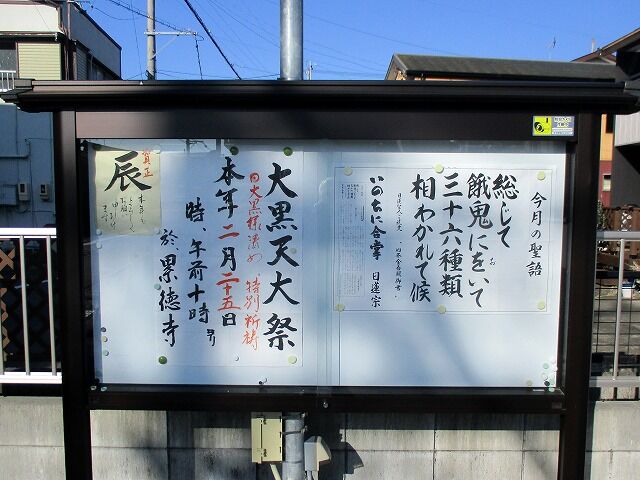 今月の聖語
総じて
餓鬼にをいて
お
三十六種類
相わかれて候
日蓮聖人・ご文章
いのちに合掌 日蓮宗
大黒天大祭
日大黒様清め 特別祈祷
本年二月二十五日
時、午前十時ヨリ
於累徳寺
賀正
辰
本年も